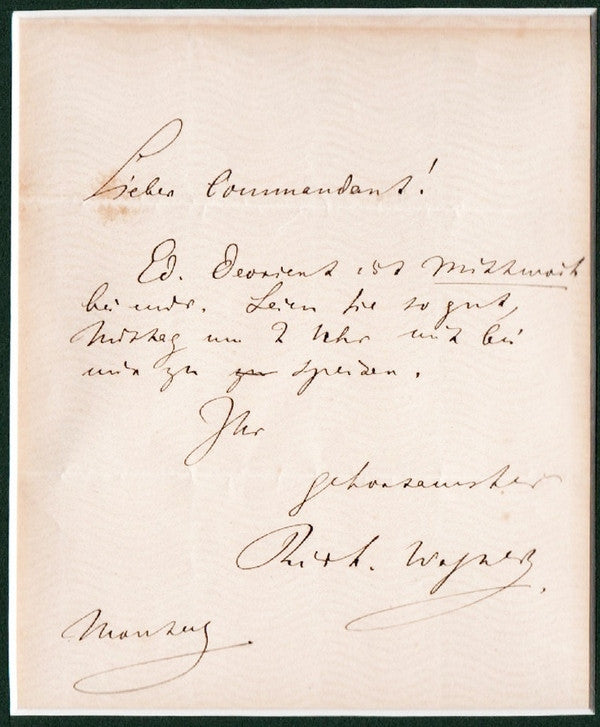 Lieber Commandant!
Ed. Devrient ist Mittwoch
bei mir. Seien Sie so gut,
Mittag um 2 Uhr mit bei
mir zu zu speisen.
Ihr
gehorsamster
Rich. Wagner
Montag